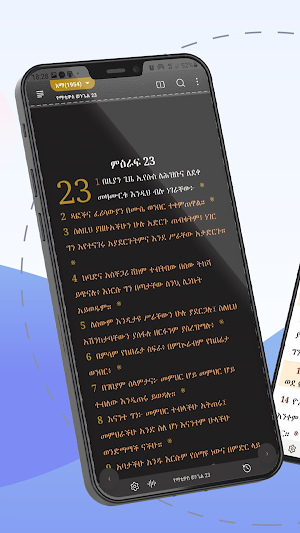 18:28
አማ(1954)
የማቴዎስ ወንጌል 23
ምዕራፍ 23
23 1 በዚያን ጊዜ ኢየሱስ ለሕዝቡና ለደቀ
መዛሙርቱ እንዲህ ብሎ ነገራቸው፦
2 ጻፎችና ፈሪሳውያን በሙሴ ወንበር ተቀምጠዋል።
3 ስለዚህ ያዘዙአችሁን ሁሉ አድርጉ ጠብቁትም፥ ነገር
ግን እየተናገሩ አያደርጉትምና እንደ ሥራቸው አታድርጉ።
4 ከባድና አስቸጋሪ ሸክም ተብትበው በሰው ትከሻ
ይጭናሉ፥ እነርሱ ግን በጣታቸው ስንኳ ሊነኩት
አይወዱም።
5 ለሰውም እንዲታዩ ሥራቸውን ሁሉ ያደርጋሉ፤ ስለዚህ
አሽንክታባቸውን ያሰፋሉ ዘርፉንም ያስረዝማሉ፥
6 በምሳም የከበሬታ ስፍራ፥ በምኵራብም የከበሬታ
ወንበር፥
7 በገበያም ሰላምታና፦ መምህር ሆይ መምህር ሆይ
ተብለው እንዲጠሩ ይወዳሉ።
8 እናንተ ግን፦ መምህር ተብላችሁ አትጠሩ፤
መምህራችሁ አንድ ስለ ሆነ እናንተም ሁላችሁ
ወንድማማች ናችሁ።
9 አባታችሁ አንዱ እርሱም የሰማዩ ነውና በምድር ላይ
የማቴዎስ ወንጌል 23
14